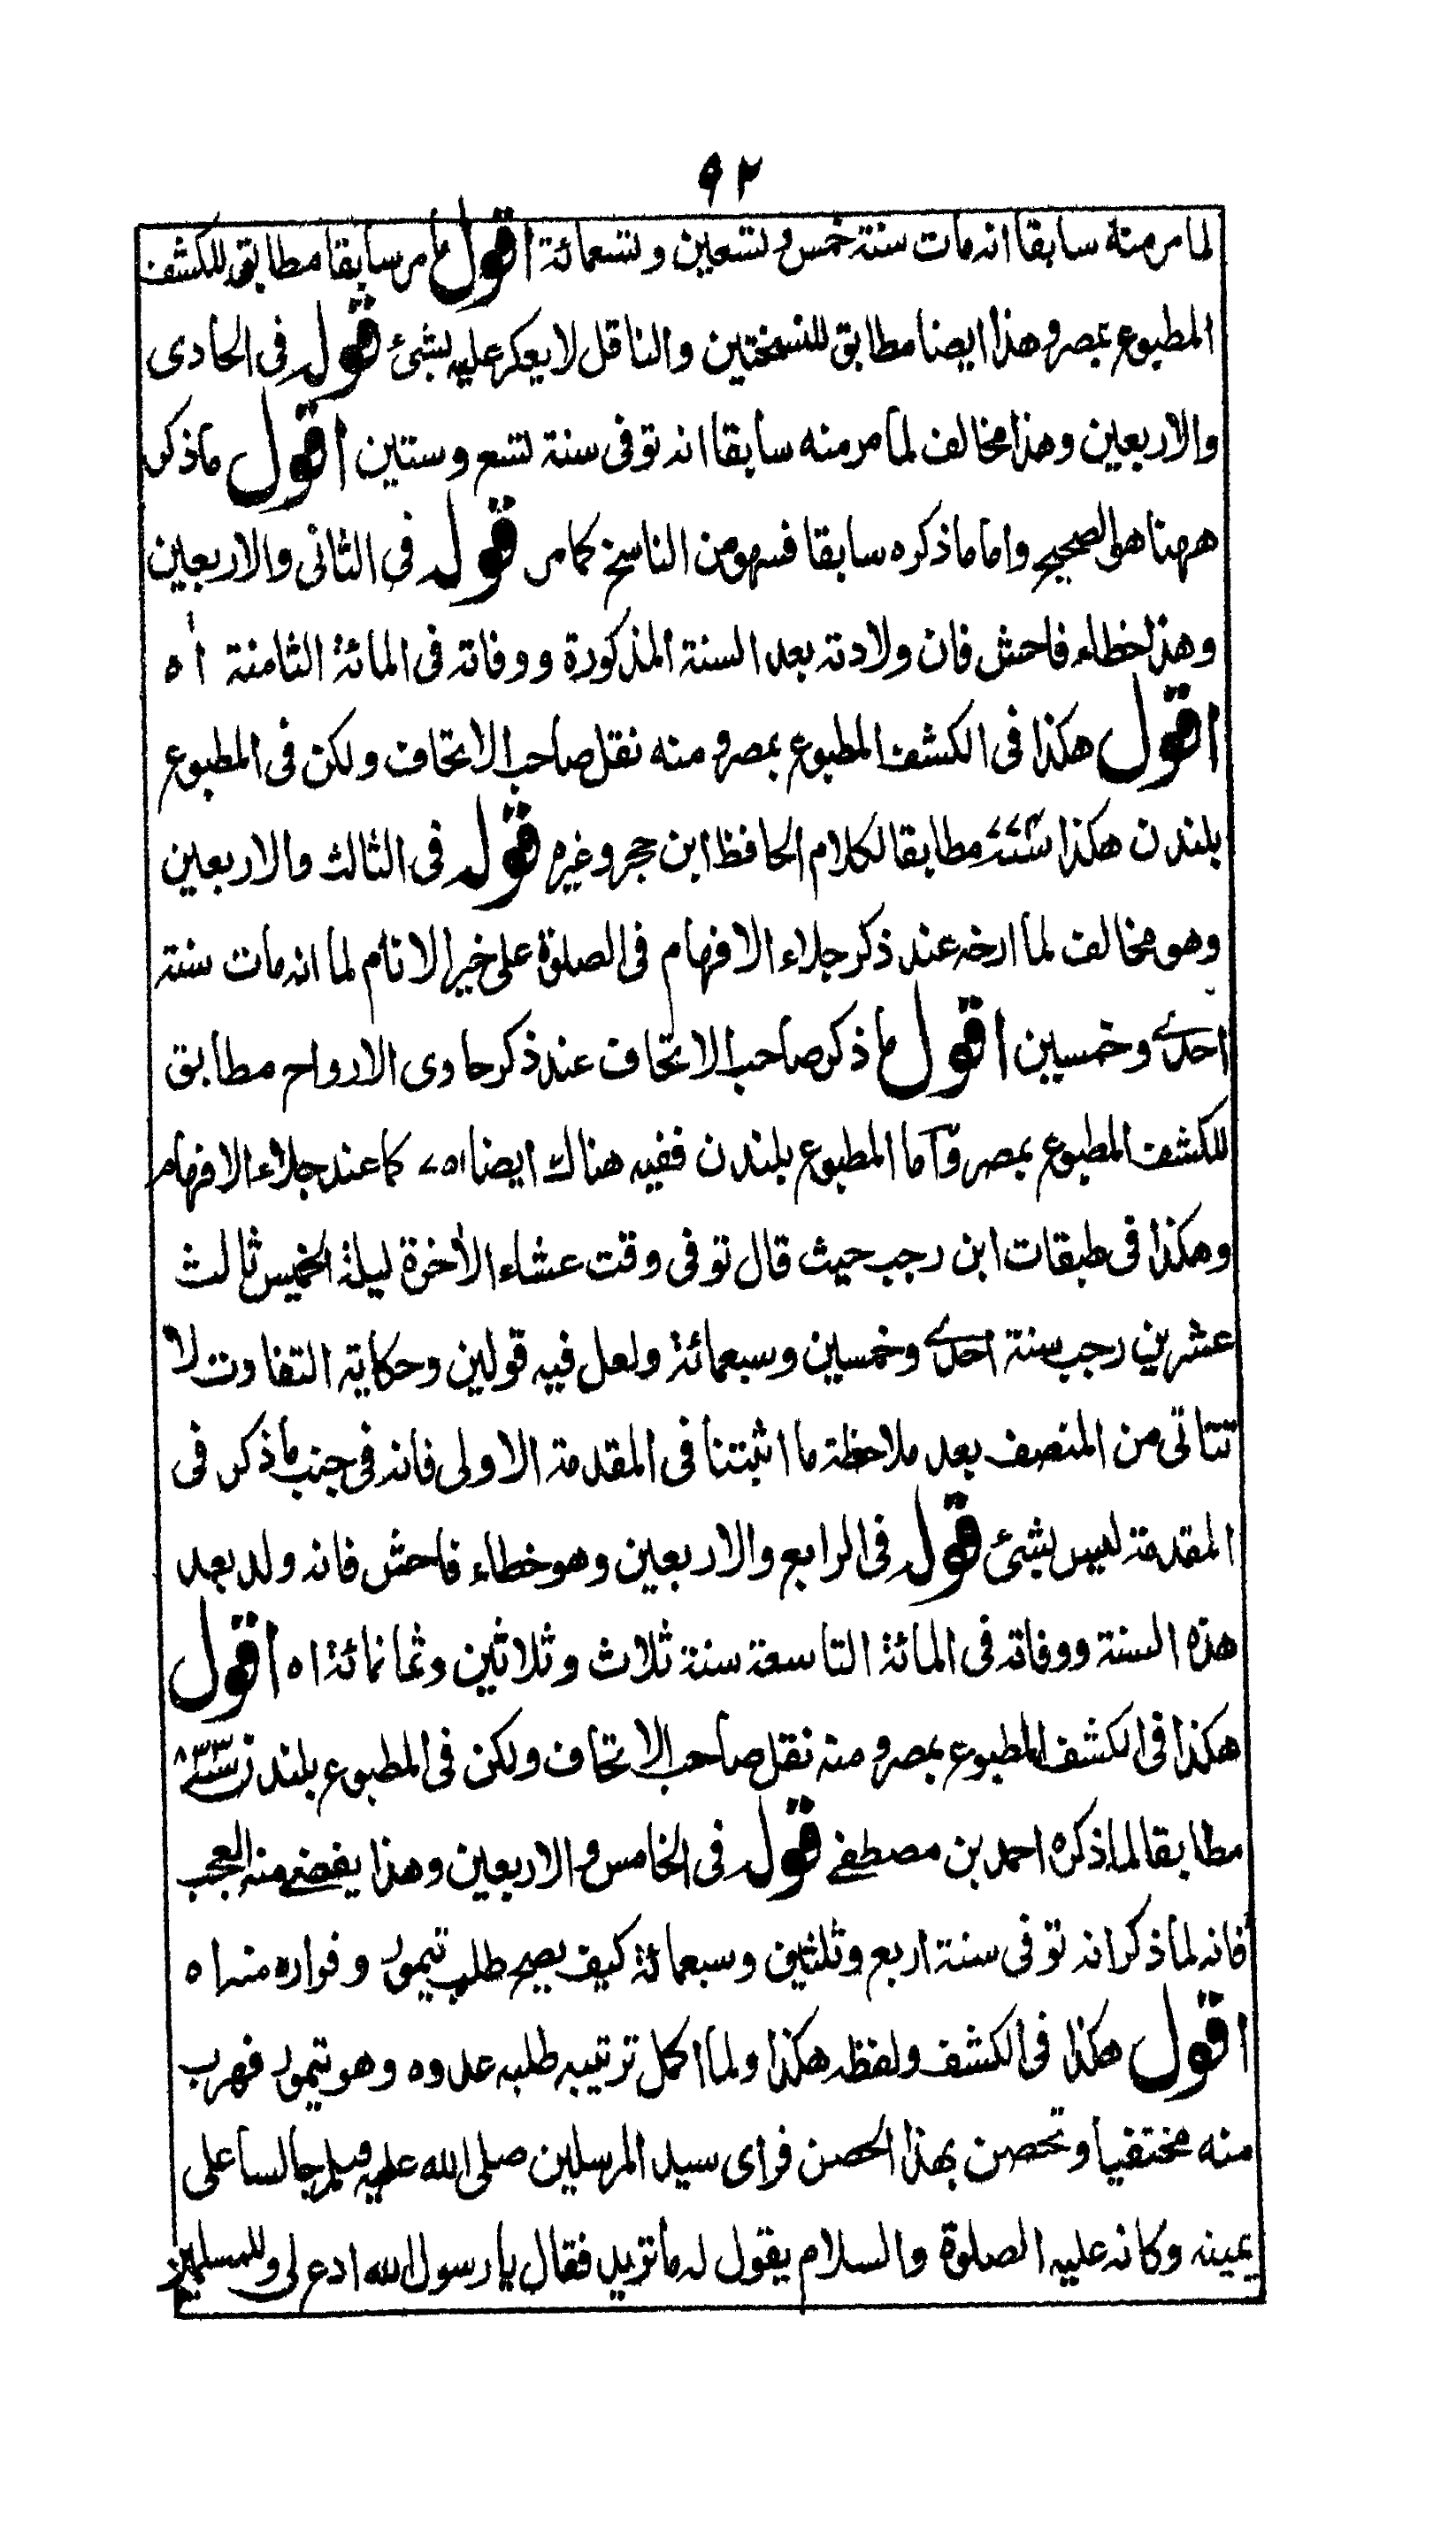 ٩٢
لما مر منه سابقا انه مات سنة خمس وتسعين وتسعمائة اقول ما مر سابقا مطابق للكشف
المطبوع بمصر وهذا ايضا مطابق للنسختين والناقل لا يعكر عليه بشئ قوله فى الحادى
والاربعين وهذا مخالف لما مر منه سابقا انه توفى سنة تسع وستين اقول ما ذكره
ههنا هو الصحيح واما ما ذكره سابقا فسهو من الناسخ كما مر قوله فى الثانى والاربعين
وهذا خطاء فاحش فان ولادته بعد السنة المذكورة ووفاته فى المائة الثامنة اه
اقول هكذا فى الكشف المطبوع بمصر ومنه نقل صاحب الاتحاف ولكن فى المطبوع
بلندن هكذا مطابقا لكلام الحافظ ابن حجر وغيره قوله فى الثالث والاربعين
وهو مخالف لما ارخه عند ذكر جلاء الافهام فى الصلوة على خير الانام لما انه مات سنة
احدے وخمسين اقول ما ذكر صاحب الاتحاف عند ذكر حاوى الارواح مطابق
للكشف المطبوع بمصر وآما المطبوع بلندن ففيه هناك ايضا ٧٥١ كما عند جلاء الافهام
وهكذا فى طبقات ابن رجب حيث قال توفى وقت عشاء الأخرة ليلة الخميس ثالث
عشرين رجب سنة احدے وخمسين وسبعمائة ولعل فيه قولين وحكاية التفاوت لا
تتاتى من المنصف بعد ملاحظة ما اثبتنا فى المقدمة الاولى فانه فى جنب ما ذكر فى
المقدمة ليس بشئ قوله فى الرابع والاربعين وهو خطاء فاحش فانه ولد بعد
هذه السنة ووفاته فى المائة التاسعة سنة ثلاث وثلاثين وثمانمائة اه اقول
هكذا فى الكشف المطبوع بمصر ومنه نقل صاحب الاتحاف ولكن فى المطبوع بلندن سنة ٨٣٣
مطابقا لما ذكره احمد بن مصطفے قوله فى الخامس والاربعين وهذا يفضے منه العجب
فانه لما ذكر انه توفى سنة اربع وثلثين وسبعمائة كيف يصح طلب تيمور وفراره منه اه
اقول هكذا فى الكشف ولفظه هكذا ولما اكمل ترتيبه طلبه عدوه وهو تيمور فهرب
منه مختفيا وتحصن بهذا الحصن فراى سيد المرسلين صلى الله عليه وسلم جالسا على
يمينه وكانه عليه الصلوة والسلام يقول له ما تريد فقال يا رسول الله ادع لى وللمسلمين